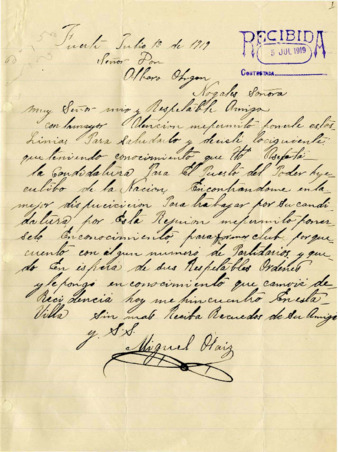 1
RECIBIDA
5 JUL. 1919
CONTESTADA
Fuerte Julio 1º de 1919
Señor Don
Alvaro Obregon
Nogales Sonora
Muy Señor mio y Respetable Amigo
con la mayor Atencion me permito ponerle estas
Linias Para Saludarlo y decirle lo ciguiente
que teniendo conocimiento que Ud Aseptó
la Candidatura Para El Puesto del Poder Eje
cutibo de la Nacion, Encontrandome en la
mejor dispocicion Para trabajar por su candi
datura por Esta Rejion me permito poner
selo En conocimiento para formar club, porque
cuento con el gran numero de Partidarios y que
do En espera de sus Respetables Ordenes
y le pongo en conocimiento que cambié de
Recidencia hoy me hincuentro En esta
Villa Sin mas Reciba Recuerdos de Su Amigo
y S.S.
Miguel Otaiz